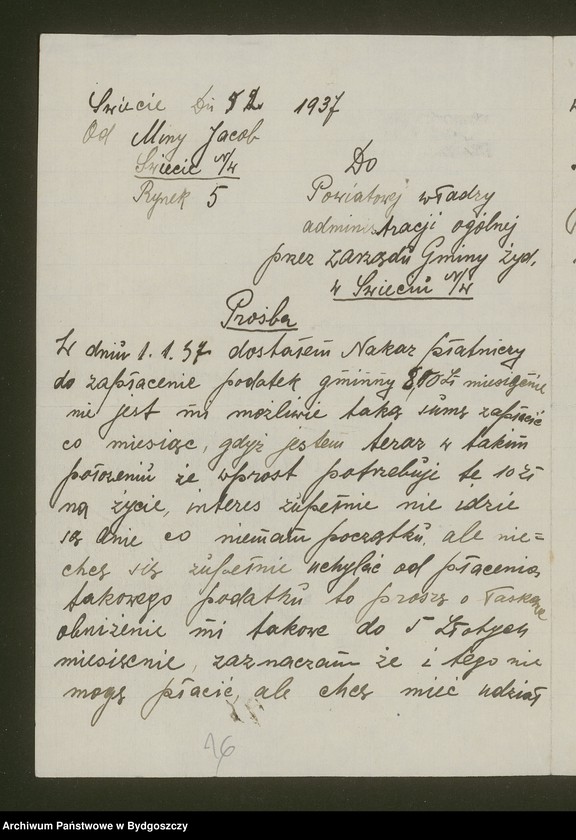 Swiecie Dn 8 2 1937
Od Miny Jacob
Swiecie N/W
Rynek 5
Do
Powiatowej władzy
administracji ogólnej
przez zarządu Gminy żyd.
w Swieciu N/W
Prośba
W dniu 1.1.37 dostałem Nakaz płatniczy
do zapłacenie podatek gminny zł miesięcznie
nie jest mi możliwie taką sumę zapłacić
co miesiąc, gdyż jestem teraz w takim
położeniu że wprost potrzebuję te 10 zł
na życie, interes zupełnie nie idzie
są dnie co niemam początku, ale nie=
chcę się zupełnie uchylać od płacenia
takowego podatku to proszę o łaskawe
obniżenie mi takowe do 5 Złotych
miesiecnie, zaznaczam że i tego nie
mogę płacić, ale chcę mieć udział
16
Archiwum Państwowe w Bydgoszczy